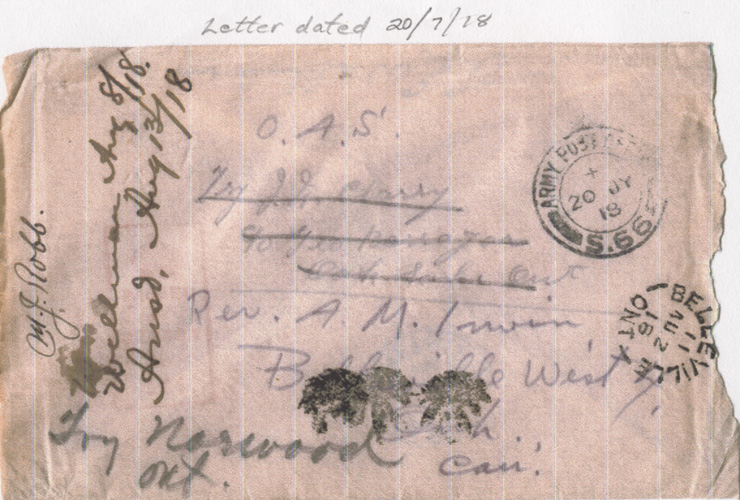 Letter dated 20/7/18
O.A.S.
Try
Oak Lake Ont
Rev. A. M. Irwin
Belleville West
Can.
Try Norwood
Ont.
Wellman Aug 8/18.
Ansd, Aug 13/18
M.J. Robb.
ARMY POST OFFICE
20 JY
18
S.66
BELLEVILLE
ONT